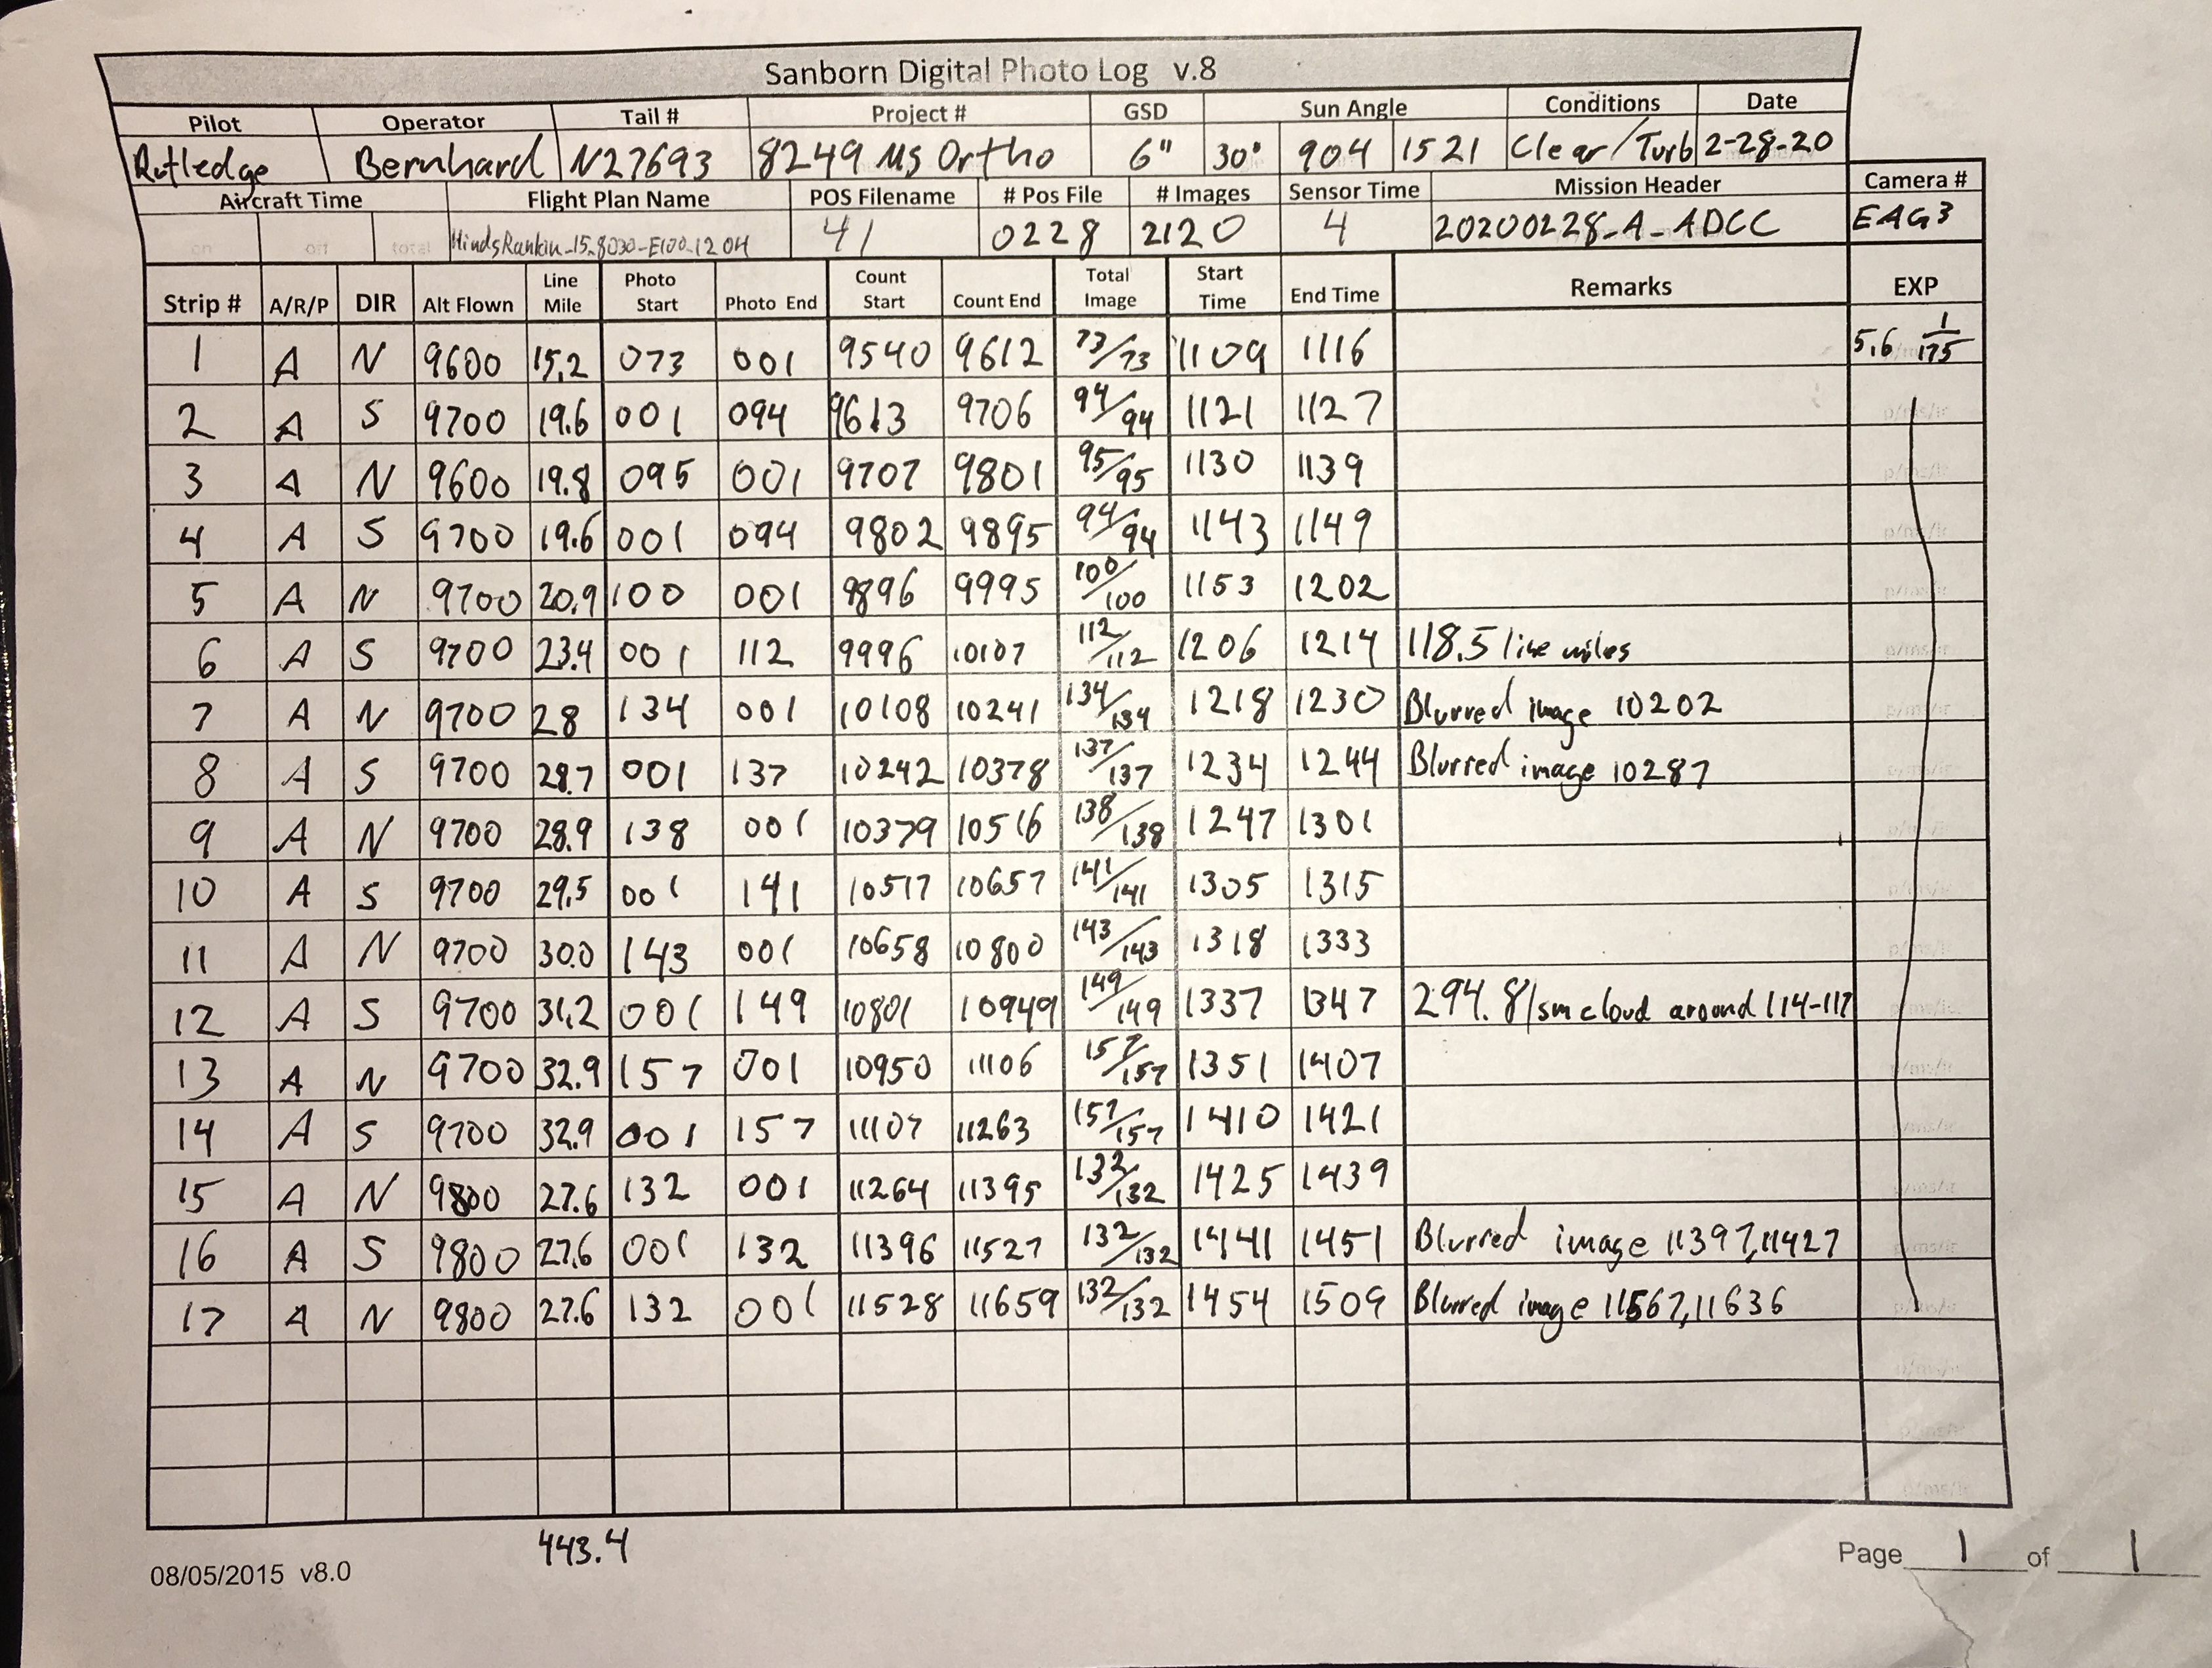 Sanborn Digital Photo Log v.8
Pilot Operator Tail # Project # GSD Sun Angle Conditions Date
Rutledge Bernhard N27693 8249 MS Ortho 6" 30° 904 1521 Clear/Turb 2-28-20
Aircraft Time Flight Plan Name POS Filename # Pos File # Images Sensor Time Mission Header Camera #
on off total HindsRankin_15_8030_E100_1204 41 0228 2120 4 20200228_A_ADCC EAG3
Strip # A/R/P DIR Alt Flown Line Mile Photo Start Photo End Count Start Count End Total Image Start Time End Time Remarks EXP
1 A N 9600 15.2 073 001 9540 9612 73/73 1109 1116 5.6 1/175
2 A S 9700 19.6 001 094 9613 9706 94/94 1121 1127
3 A N 9600 19.8 095 001 9707 9801 95/95 1130 1139
4 A S 9700 19.6 001 094 9802 9895 94/94 1143 1149
5 A N 9700 20.9 100 001 9896 9995 100/100 1153 1202
6 A S 9700 23.4 001 112 9996 10107 112/112 1206 1214 118.5 line miles
7 A N 9700 28 134 001 10108 10241 134/134 1218 1230 Blurred image 10202
8 A S 9700 28.7 001 137 10242 10378 137/137 1234 1244 Blurred image 10287
9 A N 9700 28.9 138 001 10379 10516 138/138 1247 1301
10 A S 9700 29.5 001 141 10517 10657 141/141 1305 1315
11 A N 9700 30.0 143 001 10658 10800 143/143 1318 1333
12 A S 9700 31.2 001 149 10801 10949 149/149 1337 1347 294.8/sm cloud around 114-117
13 A N 9700 32.9 157 001 10950 11106 157/157 1351 1407
14 A S 9700 32.9 001 157 11107 11263 157/157 1410 1421
15 A N 9800 27.6 132 001 11264 11395 132/132 1425 1439
16 A S 9800 27.6 001 132 11396 11527 132/132 1441 1451 Blurred image 11397,11427
17 A N 9800 27.6 132 001 11528 11659 132/132 1454 1509 Blurred image 11567,11636
443.4
08/05/2015 v8.0
Page 1 of 1